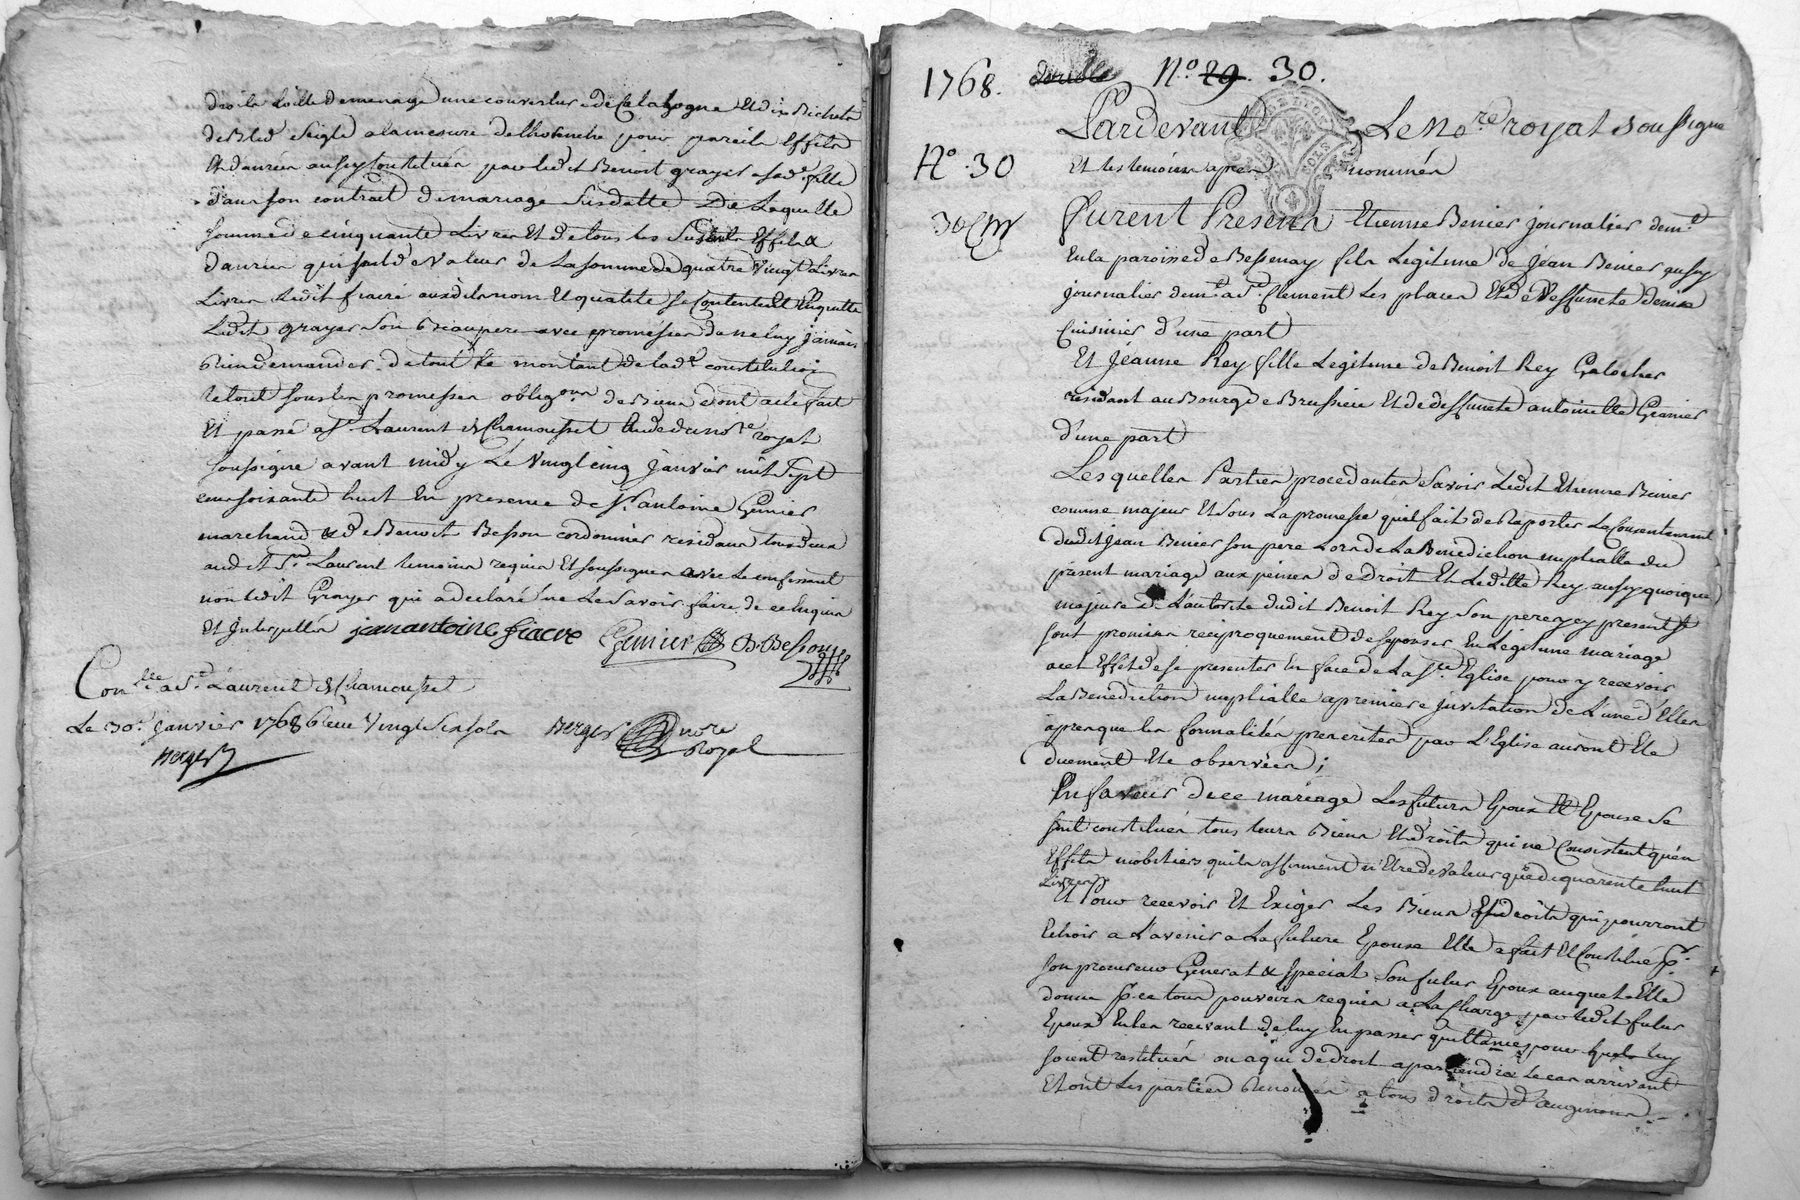 drois la toille demenage une couverture de Catalogne Et dix Bichets
de Bled Seigle a la mesure de pour pareils Effets
Et danrées aussy Constitués par ledit Benoit grayer a sad.e fille
dans son contrat de mariage Susdatte De Laquelle
somme de cinquante Livres Et de tous les Susdits Effets &
danrées qui sont de valeur de La somme de quatre vingt Livres
Livres Ledit fiacre auxdits nom Et qualité se Contente Et quitte
Ledit grayer Son Beaupere avec promesses de ne luy jamais
Rien demander de tout Le montant de lad.e constitution
le tout sous les promesses obligons de Biens dont acte fait
Et passé a St. Laurent de Chamousset Etude du no.re royal
soussigné avant midy Le vingt cinq janvier mil Sept
cent soixante huit En presence de Sr. antoine Génier
marchand & de Benoit Besson cordonnier residans tous deux
audit St. Laurent temoins requis Et soussignés avec Le confessant
non Ledit Grayer qui a declaré ne Le savoir faire de ce Enquis
Et Interpellés jean antoine fiacre Genier B. Besson
Con.llé a St. Laurent de Chamousset
Le 30.e Janvier 1768 Reçu vingt six sols Berger no.re
Royal
Berger
1768. double N.o 29. 30.
Pardevant Le No.re royal soussigné
N.o 30
Et les temoins après nommés
30
furent Presens Etienne Benier journalier dem.t
En la paroisse de Bessenay fils Legitime de jean Benier aussy
journalier dem.t a St. Clement Les places Et de deffuncte denise
Cuisinier d'une part
Et jéanne Rey fille Legitime de Benoit Rey Galocher
résidant au Bourg de Brussieu Et de deffuncte antoinette Granier
d'une part
Lesquelles Parties procedantes Savoir Ledit Etienne Benier
comme majeur Et sous La promesse qu'il fait de Raporter Le Consentement
dudit jean Benier son pere Lors de La Benediction nuptialle du
présent mariage aux peines de Droit Et Ladite Rey aussy quoique
majeure de L'autorité dudit Benoit Rey Son pere icy present se
sont promises reciproquement de sepouser En Légitime mariage
a cet Effet de se presenter En face de La Ste. Eglise pour y recevoir
La Benediction nuptialle a premiere jnvitation de L'une d'Elles
après que les formalités prescrites par L'Eglise auront Eté
duement Eté observées;
En faveur de ce mariage Les futurs Epoux Et Epouse Se
sont constitués tous leurs Biens Et droits qui ne Consistent qu'en
Effets mobiliers qu'ils affirment n'Etre de valeur que de quarente huit
Livres
Et Pour recevoir Et Exiger Les Biens Et droits qui pourront
Echoir a L'avenir a La future Epouse Elle a fait Et Constitué p.r
son procureur Général & special Son futur Epoux auquel Elle
donne p.r ce tous pouvoirs requis a La Charge par ledit futur
Epoux En les recevant de luy En passer quittances pour luy
soient restitués ou a qui de droit apartiendra le cas arrivant
Et ont Les parties Renoncés a tous droits d'augmens